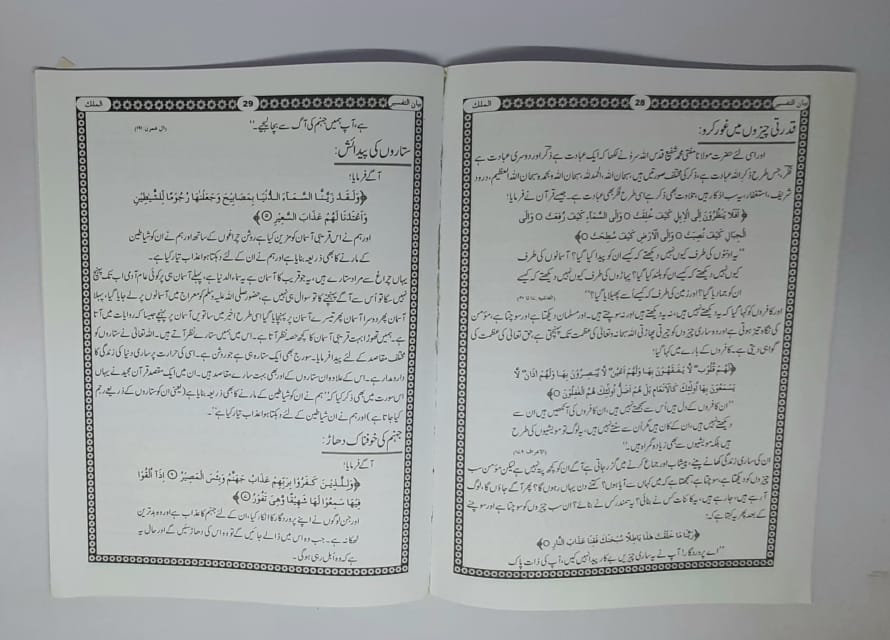 بیان التفسیر
28
الملک
قدرتی چیزوں میں غور کرو:
اور اسی لئے حضرت مولانا مفتی محمد شفیع قدس اللہ سرہٗ نے لکھا کہ ایک عبادت ہے ذکر اور دوسری عبادت ہے
فکر، جس طرح ذکر اللہ عبادت ہے، ذکر کی مختلف صورتیں ہیں، سبحان اللہ، الحمد للہ، سبحان اللہ وبحمدہ سبحان اللہ العظیم، درود
شریف، استغفار، یہ سب اذکار ہیں، تلاوت بھی ذکر ہے اسی طرح فکر بھی عبادت ہے۔ جیسے قرآن نے فرمایا:
﴿اَفَلَا یَنْظُرُوْنَ اِلَی الْاِبِلِ کَیْفَ خُلِقَتْ ○ وَاِلَی السَّمَآءِ کَیْفَ رُفِعَتْ ○ وَاِلَی
الْجِبَالِ کَیْفَ نُصِبَتْ ○ وَاِلَی الْاَرْضِ کَیْفَ سُطِحَتْ ○﴾
”یہ اونٹوں کی طرف کیوں نہیں دیکھتے کہ کیسے ان کو پیدا کیا گیا؟ آسمانوں کی طرف
کیوں نہیں دیکھتے کہ کیسے ان کو بلند کیا گیا؟ پہاڑوں کی طرف کیوں نہیں دیکھتے کہ کیسے
ان کو جمادیا گیا؟ اور زمین کی طرف کہ کیسے اُسے پھیلایا گیا؟“
اور کافروں کو کہا گیا کہ یہ دیکھتے نہیں ہیں، اندھے ہیں، نہ یہ دیکھتے ہیں اور نہ سوچتے ہیں۔ اور مسلمان دیکھتا ہے اور سوچتا ہے، مؤمن
کی نگاہ تیز ہوتی ہے اور وہ ساری چیزوں کو چیرتی پھاڑتی اللہ سبحانہ وتعالی کی عظمت تک پہنچتی ہے، حق تعالی کی عظمت کی
گواہی دیتی ہے۔ کافروں کے بارے میں کہا گیا:
﴿لَهُمْ قُلُوْبٌ لَّا یَفْقَهُوْنَ بِهَا وَلَهُمْ اَعْیُنٌ لَّا یُبْصِرُوْنَ بِهَا وَلَهُمْ اٰذَانٌ لَّا
یَسْمَعُوْنَ بِهَا اُولٰٓئِكَ کَالْاَنْعَامِ بَلْ هُمْ اَضَلُّ اُولٰٓئِكَ هُمُ الْغٰفِلُوْنَ ○﴾
”ان کافروں کے دل ہیں اُس سے سمجھتے نہیں ہیں، ان کافروں کی آنکھیں ہیں ان سے
دیکھتے نہیں ہیں، ان کے کان ہیں مگر اُن سے سنتے نہیں ہیں، یہ لوگ تو مویشیوں کی طرح
ہیں بلکہ مویشیوں سے بھی زیادہ گمراہ ہیں۔“
ان کی ساری زندگی کھانے پینے، پیشاب اور جماع کرنے میں گزر جاتی ہے آگے ان کو کچھ پتہ نہیں ہے لیکن مؤمن سب
چیزوں کو دیکھتا ہے، سوچتا ہے، سمجھتا ہے کہ میں کہاں سے آیا ہوں؟ کتنے دن یہاں رہوں گا؟ پھر آگے جاؤں گا، لوگ
آرہے ہیں، جارہے ہیں، یہ کائنات کس نے بنائی؟ یہ سمندر کس نے بنائے؟ ان سب چیزوں کو سوچتا ہے اور سوچنے
کے بعد پھر یہ کہتا ہے کہ:
﴿رَبَّنَا مَا خَلَقْتَ هٰذَا بَاطِلًا سُبْحٰنَكَ فَقِنَا عَذَابَ النَّارِ ○﴾
”اے پروردگار! آپ نے یہ ساری چیزیں بے کار پیدا نہیں کیں، آپ کی ذات پاک
بیان التفسیر
29
الملک
ہے، آپ ہمیں جہنم کی آگ سے بچا لیجیے۔“
ستاروں کی پیدائش:
آگے فرمایا:
﴿وَلَقَدْ زَیَّنَّا السَّمَآءَ الدُّنْیَا بِمَصَابِیْحَ وَجَعَلْنٰهَا رُجُوْمًا لِّلشَّیٰطِیْنِ
وَاَعْتَدْنَا لَهُمْ عَذَابَ السَّعِیْرِ ○﴾
اور ہم نے اس قریبی آسمان کو مزین کیا ہے روشن چراغوں کے ساتھ اور ہم نے ان کو شیاطین
کے مارنے کا بھی ذریعہ بنایا ہے اور ہم نے ان کے لئے دہکتا ہوا عذاب تیار کیا ہے۔
یہاں چراغ سے مراد ستارے ہیں، یہ جو قریب کا آسمان ہے یہ سماء الدنیا ہے، پہلے آسمان ہی پر کوئی عام آدمی اب تک پہنچ
نہیں سکا تو اُس سے آگے پہنچنے کا تو سوال ہی نہیں ہے، حضور صلی اللہ علیہ وسلم کو معراج میں آسمانوں پر لے جایا گیا، پہلا
آسمان پھر دوسرا آسمان پھر تیسرے آسمان پر پہنچایا گیا اسی طرح اخیر میں ساتویں آسمان پر پہنچے جیسا کہ روایات میں آتا
ہے۔ ہمیں تھوڑا بہت قریبی آسمان کا کچھ حصہ نظر آتا ہے۔ اس میں ہمیں ستارے نظر آتے ہیں۔ اللہ تعالی نے ستاروں کو
مختلف مقاصد کے لئے پیدا فرمایا۔ سورج بھی ایک ستارہ ہی ہے جو روشن ہے۔ اسی کی حرارت پر ساری دنیا کی زندگی کا
دارومدار ہے۔ اس کے علاوہ ان ستاروں کے اور بھی بہت سارے مقاصد ہیں۔ ان میں ایک مقصد قرآن مجید نے یہاں
اس سورت میں بھی ذکر کیا کہ ”ہم نے ان کو شیاطین کے مارنے کا بھی ذریعہ بنایا ہے (یعنی ان کو ستاروں کے ذریعے رجم
کیا جاتا ہے) اور ہم نے ان شیاطین کے لئے دہکتا ہوا عذاب تیار کیا ہے“۔
جہنم کی خوفناک دھاڑ:
آگے فرمایا:
﴿وَلِلَّذِیْنَ کَفَرُوْا بِرَبِّهِمْ عَذَابُ جَهَنَّمَ وَبِئْسَ الْمَصِیْرُ ○ اِذَآ اُلْقُوْا
فِیْهَا سَمِعُوْا لَهَا شَهِیْقًا وَّهِیَ تَفُوْرُ ○﴾
اور جن لوگوں نے اپنے پروردگار کا انکار کیا، ان کے لئے جہنم کا عذاب ہے اور وہ بدترین
ٹھکانہ ہے۔ جب وہ اس میں ڈالے جائیں گے تو وہ اس کی دھاڑ سنیں گے اور حال یہ
ہے کہ وہ اُبل رہی ہوگی۔